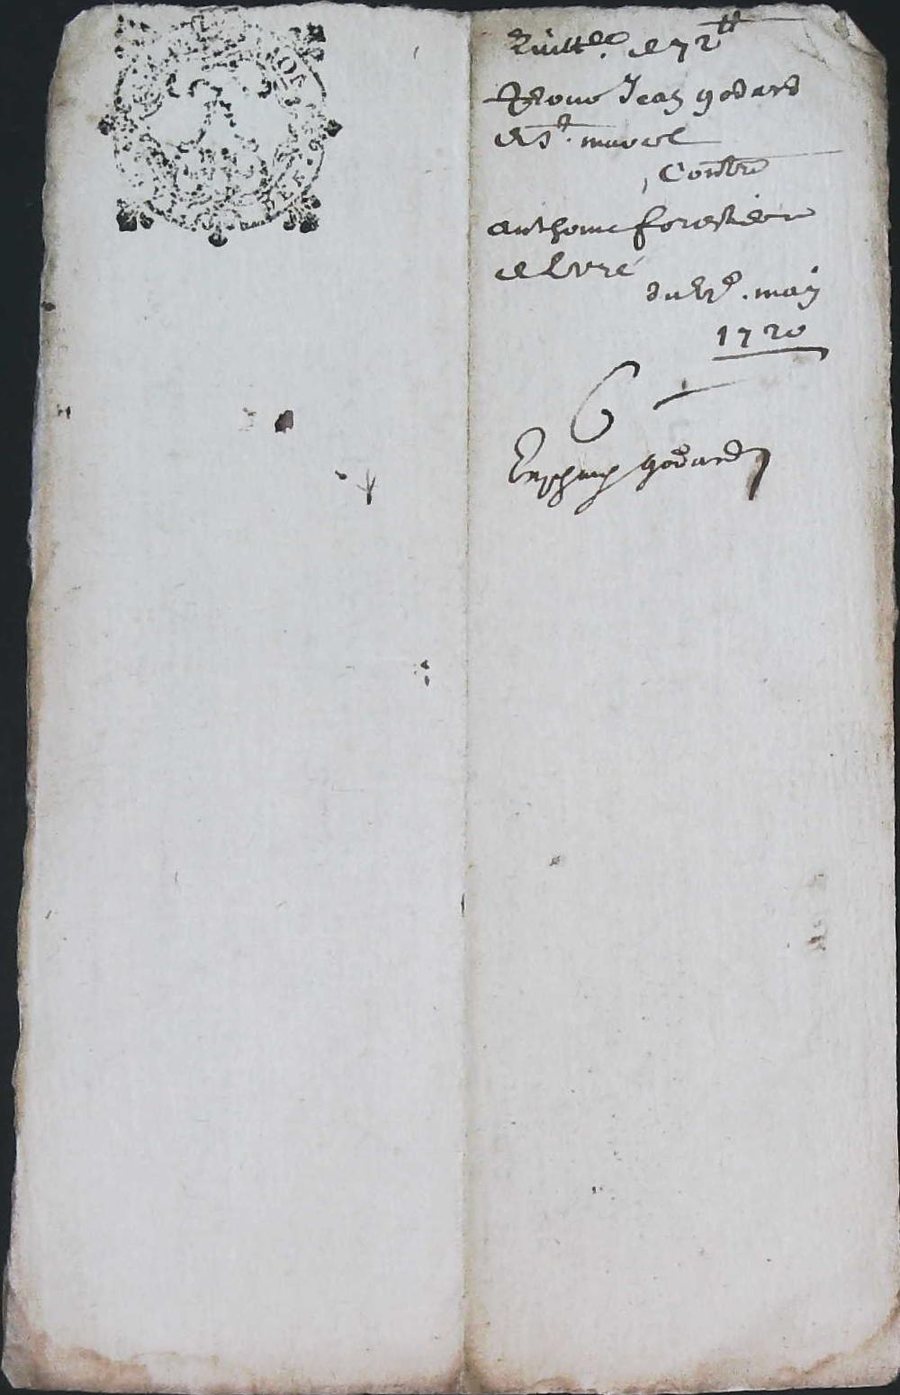 Quittce. de 72tt
pour Jean godard
de St. marcel
Contre
anthoine forestier
de Luré
du . may
1720
6
godard